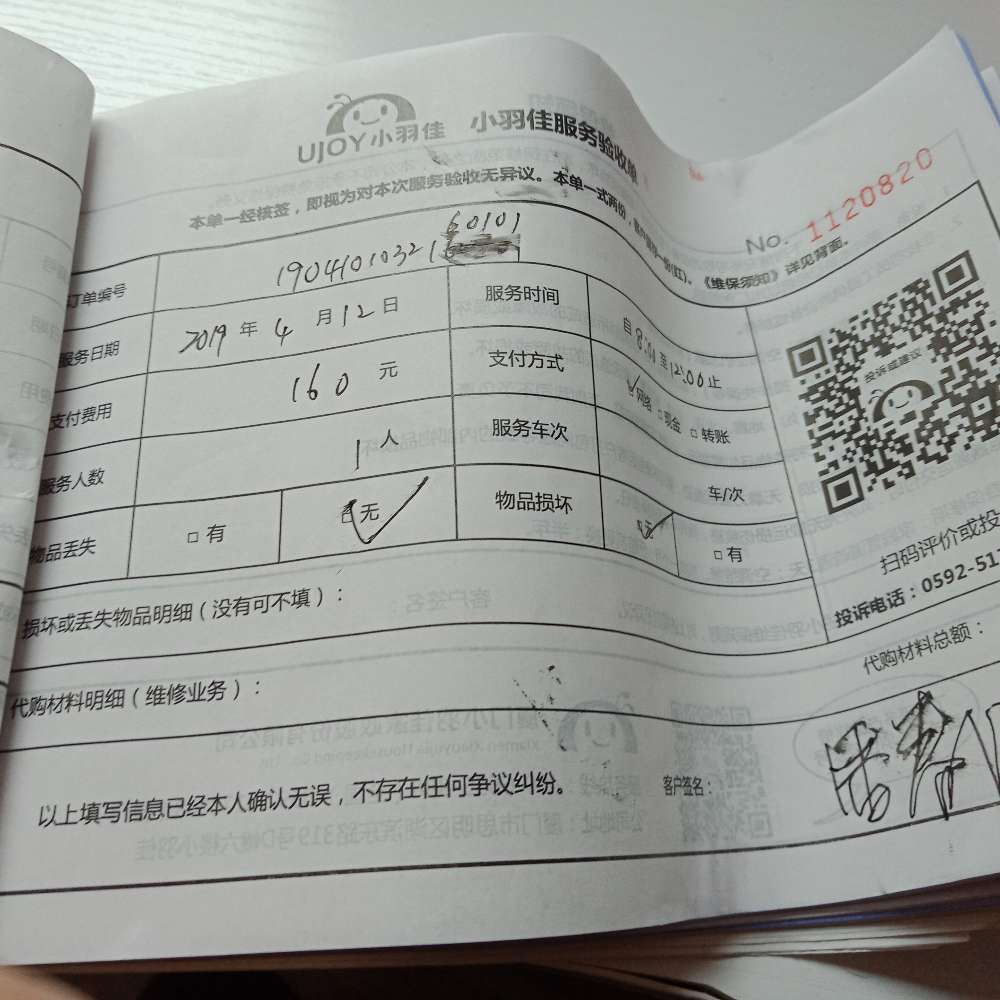 UJOY小羽佳 小羽佳服务验收单
本单一经核签，即视为对本次服务验收无异议。本单一式两份，
《维保须知》详见背面。
No. 1120820
订单编号 1904101032160101
服务日期 2019年4月12日 服务时间 自8:00至12:00止
支付费用 160元 支付方式 网络 □现金 □转账
服务人数 1人 服务车次 车/次
物品丢失 □有 无 物品损坏 无 □有
投诉或建议
扫码评价或投
投诉电话：0592-51
损坏或丢失物品明细（没有可不填）：
代购材料明细（维修业务）： 代购材料总额：
以上填写信息已经本人确认无误，不存在任何争议纠纷。 客户签名：